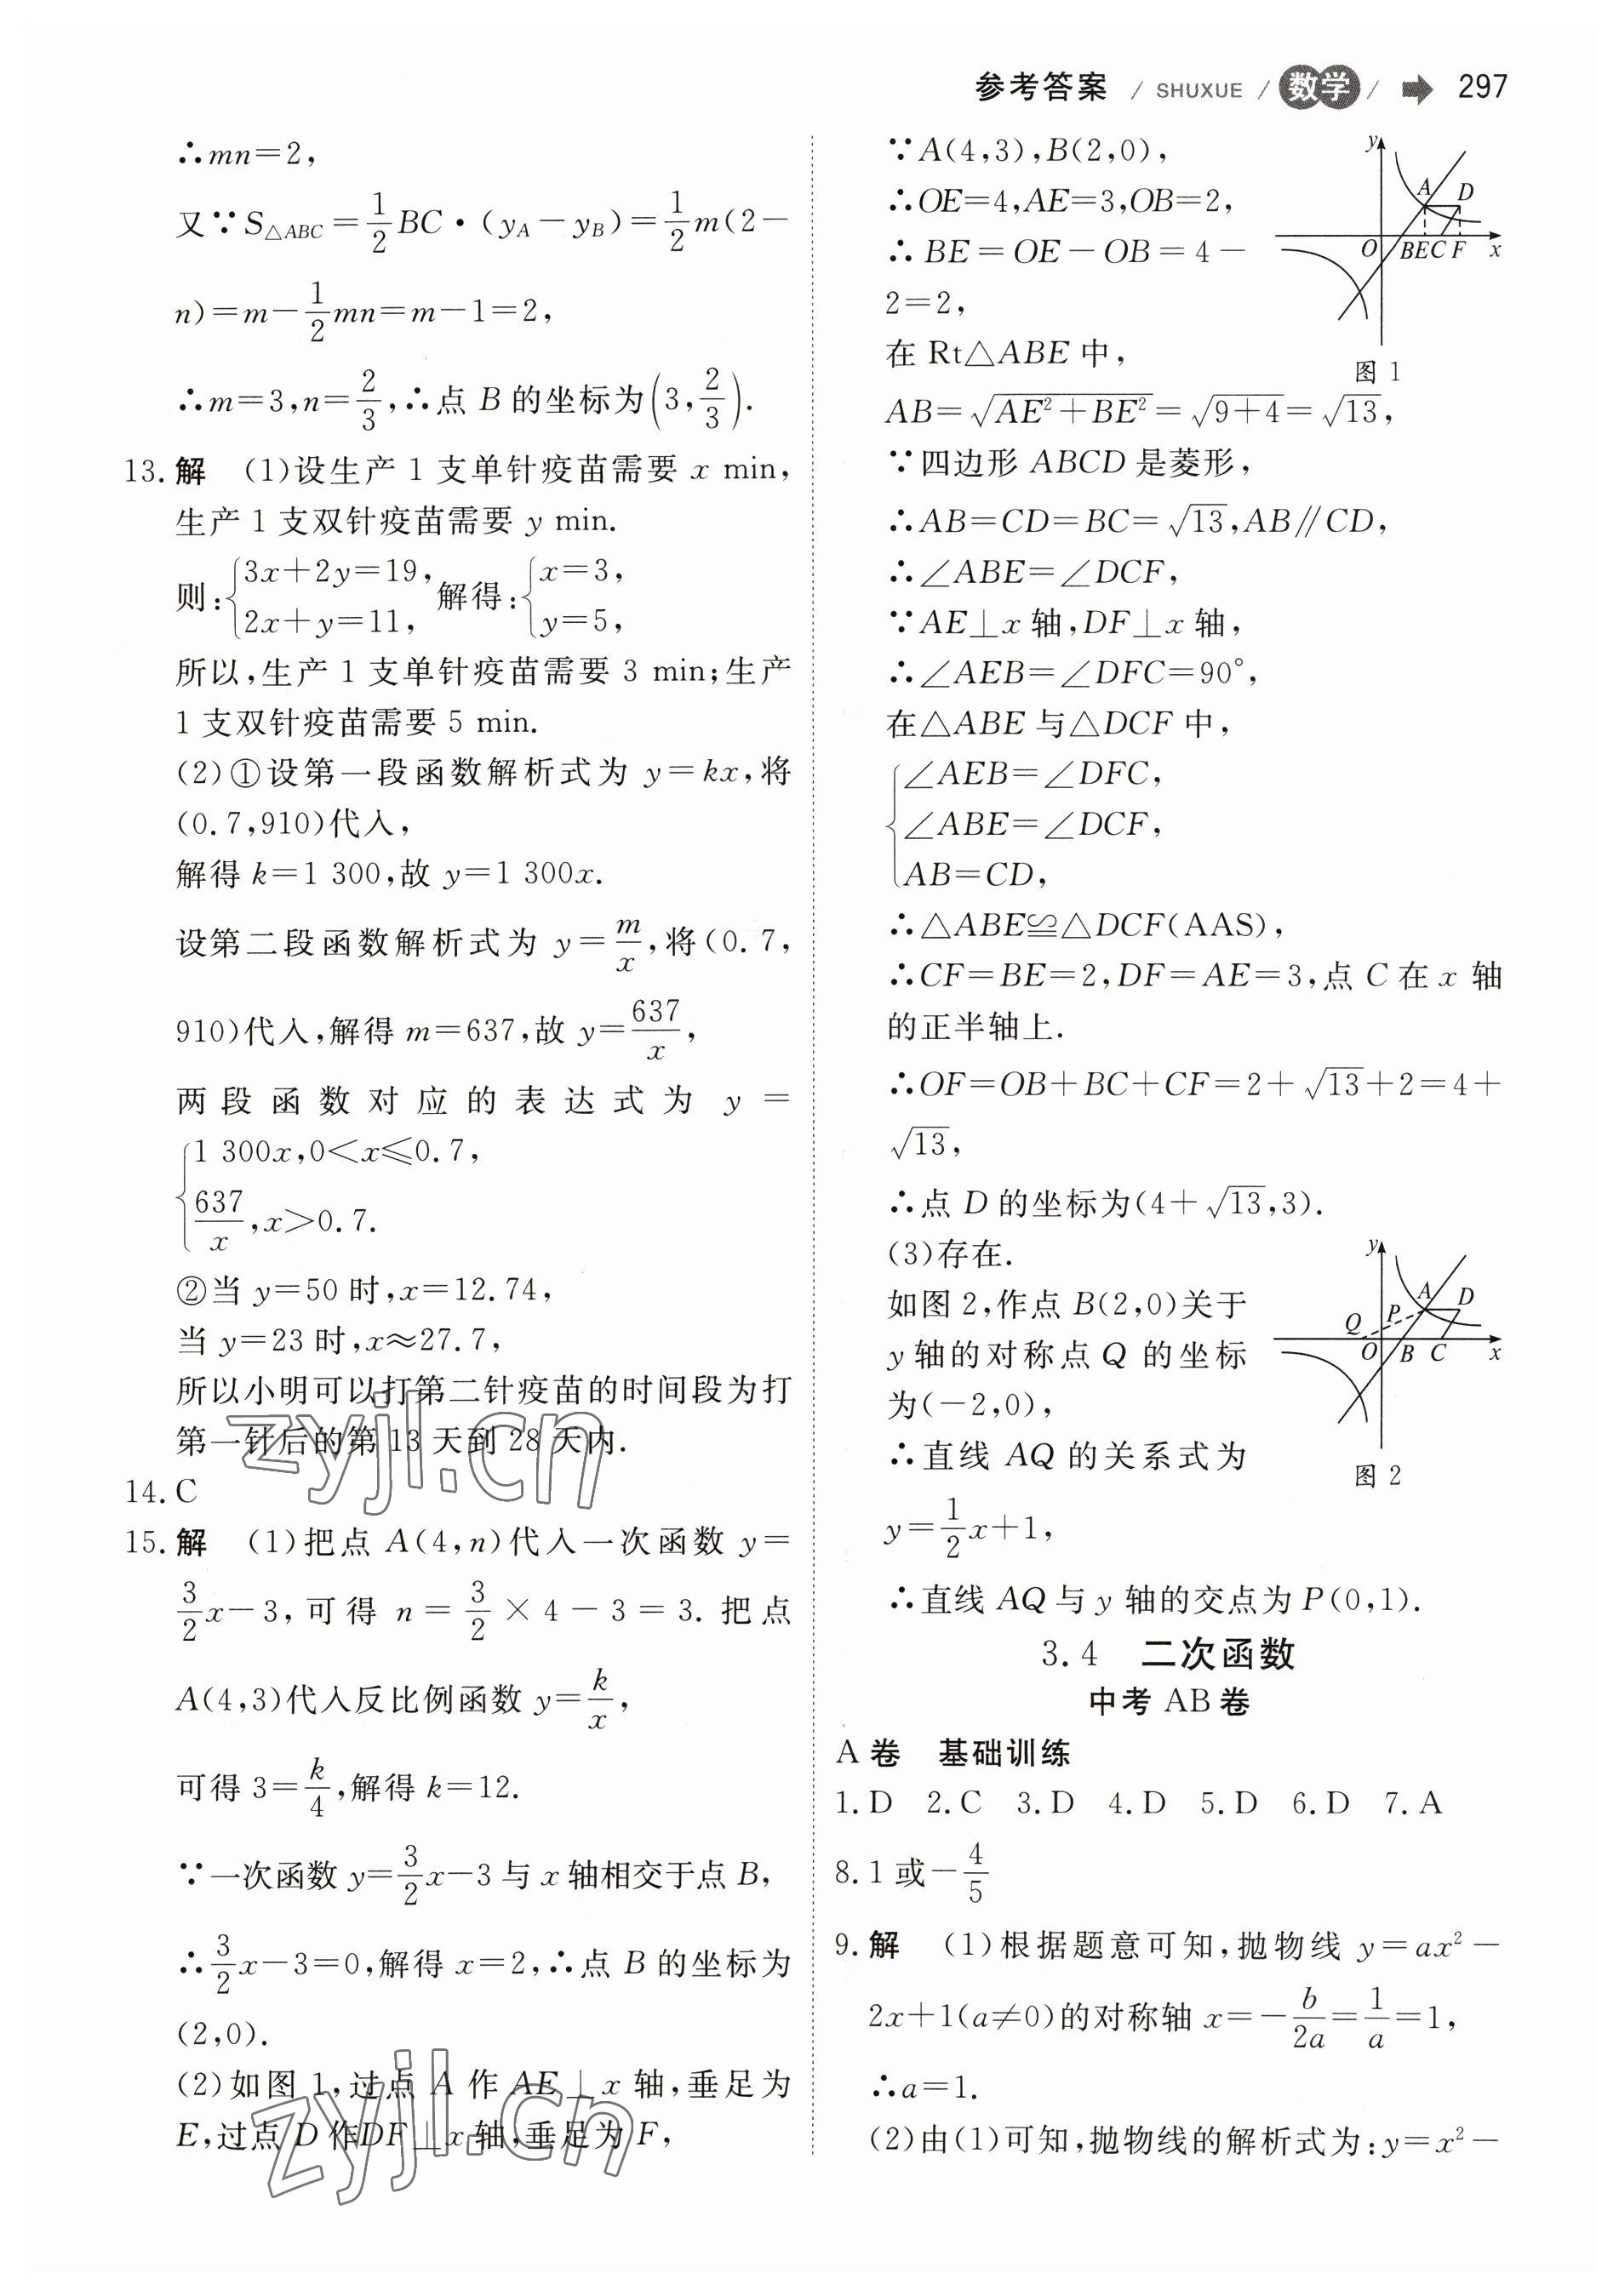 参考答案 / SHUXUE / 数学 / 297
∴mn=2,
又∵S△ABC=1/2BC·(yA-yB)=1/2m(2-
n)=m-1/2mn=m-1=2,
∴m=3,n=2/3,∴点 B 的坐标为(3,2/3).
13.解 (1)设生产 1 支单针疫苗需要 x min,
生产 1 支双针疫苗需要 y min.
则:{3x+2y=19, 2x+y=11, 解得:{x=3, y=5,
所以,生产 1 支单针疫苗需要 3 min;生产
1 支双针疫苗需要 5 min.
(2)①设第一段函数解析式为 y=kx,将
(0.7,910)代入,
解得 k=1 300,故 y=1 300x.
设第二段函数解析式为 y=m/x,将(0.7,
910)代入,解得 m=637,故 y=637/x,
两段函数对应的表达式为 y=
{1 300x,0<x≤0.7,
637/x,x>0.7.
②当 y=50 时,x=12.74,
当 y=23 时,x≈27.7,
所以小明可以打第二针疫苗的时间段为打
第一针后的第 13 天到 28 天内.
14.C
15.解 (1)把点 A(4,n)代入一次函数 y=
3/2x-3,可得 n=3/2×4-3=3.把点
A(4,3)代入反比例函数 y=k/x,
可得 3=k/4,解得 k=12.
∵一次函数 y=3/2x-3 与 x 轴相交于点 B,
∴3/2x-3=0,解得 x=2,∴点 B 的坐标为
(2,0).
(2)如图 1,过点 A 作 AE⊥x 轴,垂足为
E,过点 D 作DF⊥x 轴,垂足为 F,
zyjl.cn
zyjl.cn
∵A(4,3),B(2,0),
∴OE=4,AE=3,OB=2,
∴BE=OE-OB=4-
2=2,
在 Rt△ABE 中,
y
A D
O BEC F x
图 1
AB=√(AE²+BE²)=√(9+4)=√13,
∵四边形 ABCD 是菱形,
∴AB=CD=BC=√13,AB∥CD,
∴∠ABE=∠DCF,
∵AE⊥x 轴,DF⊥x 轴,
∴∠AEB=∠DFC=90°,
在△ABE 与△DCF 中,
{∠AEB=∠DFC,
∠ABE=∠DCF,
AB=CD,
∴△ABE≌△DCF(AAS),
∴CF=BE=2,DF=AE=3,点 C 在 x 轴
的正半轴上.
∴OF=OB+BC+CF=2+√13+2=4+
√13,
∴点 D 的坐标为(4+√13,3).
(3)存在.
如图 2,作点 B(2,0)关于
y 轴的对称点 Q 的坐标
为(-2,0),
∴直线 AQ 的关系式为
y
A D
P
Q
O B C x
图 2
y=1/2x+1,
∴直线 AQ 与 y 轴的交点为 P(0,1).
3.4 二次函数
中考 AB 卷
A 卷 基础训练
1.D 2.C 3.D 4.D 5.D 6.D 7.A
8.1 或-4/5
9.解 (1)根据题意可知,抛物线 y=ax²-
2x+1(a≠0)的对称轴 x=-b/2a=1/a=1,
∴a=1.
(2)由(1)可知,抛物线的解析式为:y=x²-